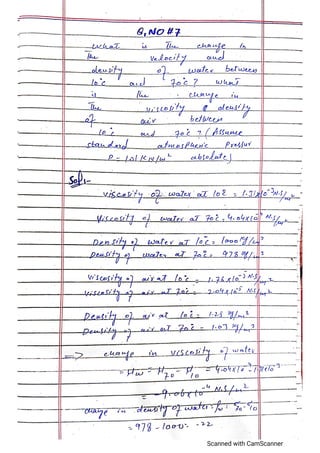 Q,NO #7
what is The change in
the velocity and
density of water between
10°c and 70°c ? what
is the change in
The viscosity & density
of air between
10°c and 70°c ? (Assume
standard atmospheric Pressur
P = 101 KN/m² absolute)
Sol:-
viscosity of water at 10° = 1.31x10⁻³N.S/m²
Viscosity of water at 70°c, 4.04x10⁻⁴ N.S/m²
Density of water at 10°c = 1000 kg/m³
Density of water at 70°c, 978 kg/m³
Viscosity of air at 10°c = 1.76x10⁻⁵N.S/m²
Viscosity of air at 70°c = 2.04x10⁻⁵ N.S/m²
Density of air at 10°c = 1.25 kg/m³
Density of air at 70°c = 1.03 kg/m³
=> change in viscosity of water
= 9.06x10⁻⁴ N.S/m²
change in density of water =
= 978 - 1000 = -22
Scanned with CamScanner